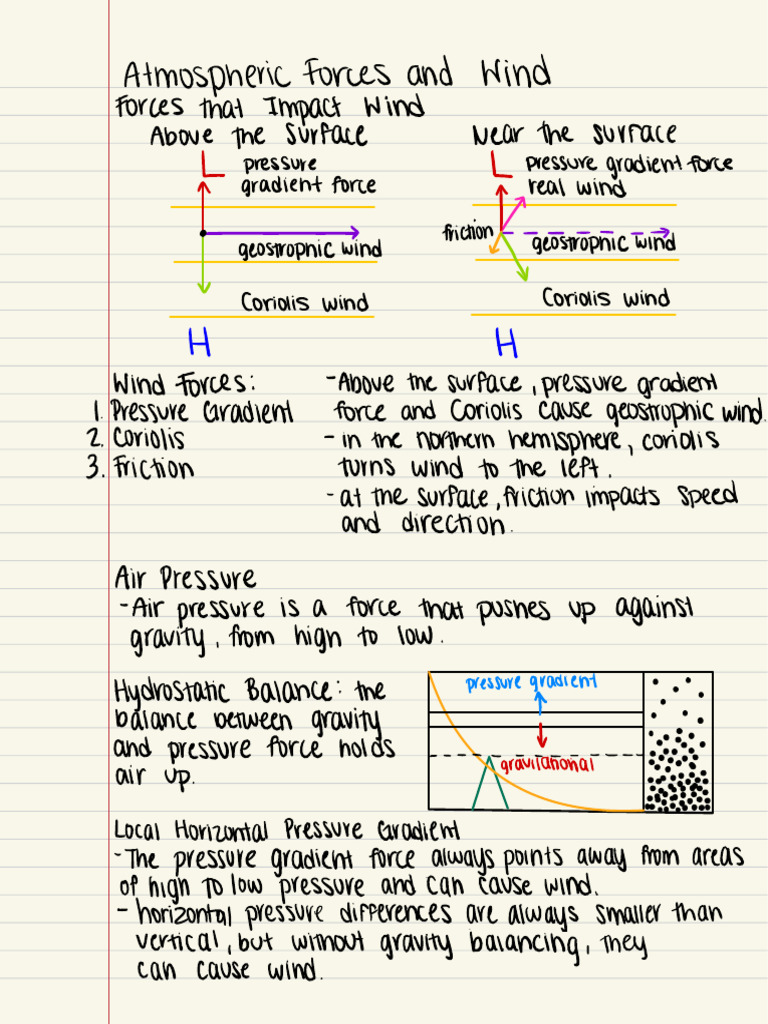 Atmospheric Forces and Wind
Forces that Impact Wind
Above the Surface
L pressure
gradient force
geostrophic wind
Coriolis wind
H
Near the surface
L pressure gradient force
real wind
friction
geostrophic wind
Coriolis wind
H
Wind Forces:
1. Pressure Gradient
2. Coriolis
3. Friction
- Above the surface, pressure gradient
force and Coriolis cause geostrophic wind.
- in the northern hemisphere, coriolis
turns wind to the left.
- at the surface, friction impacts speed
and direction.
Air Pressure
- Air pressure is a force that pushes up against
gravity, from high to low.
Hydrostatic Balance: the
balance between gravity
and pressure force holds
air up.
pressure gradient
gravilational
Local Horizontal Pressure Gradient
- The pressure gradient force always points away from areas
of high to low pressure and can cause wind.
- horizontal pressure differences are always smaller than
vertical, but without gravity balancing, they
can cause wind.